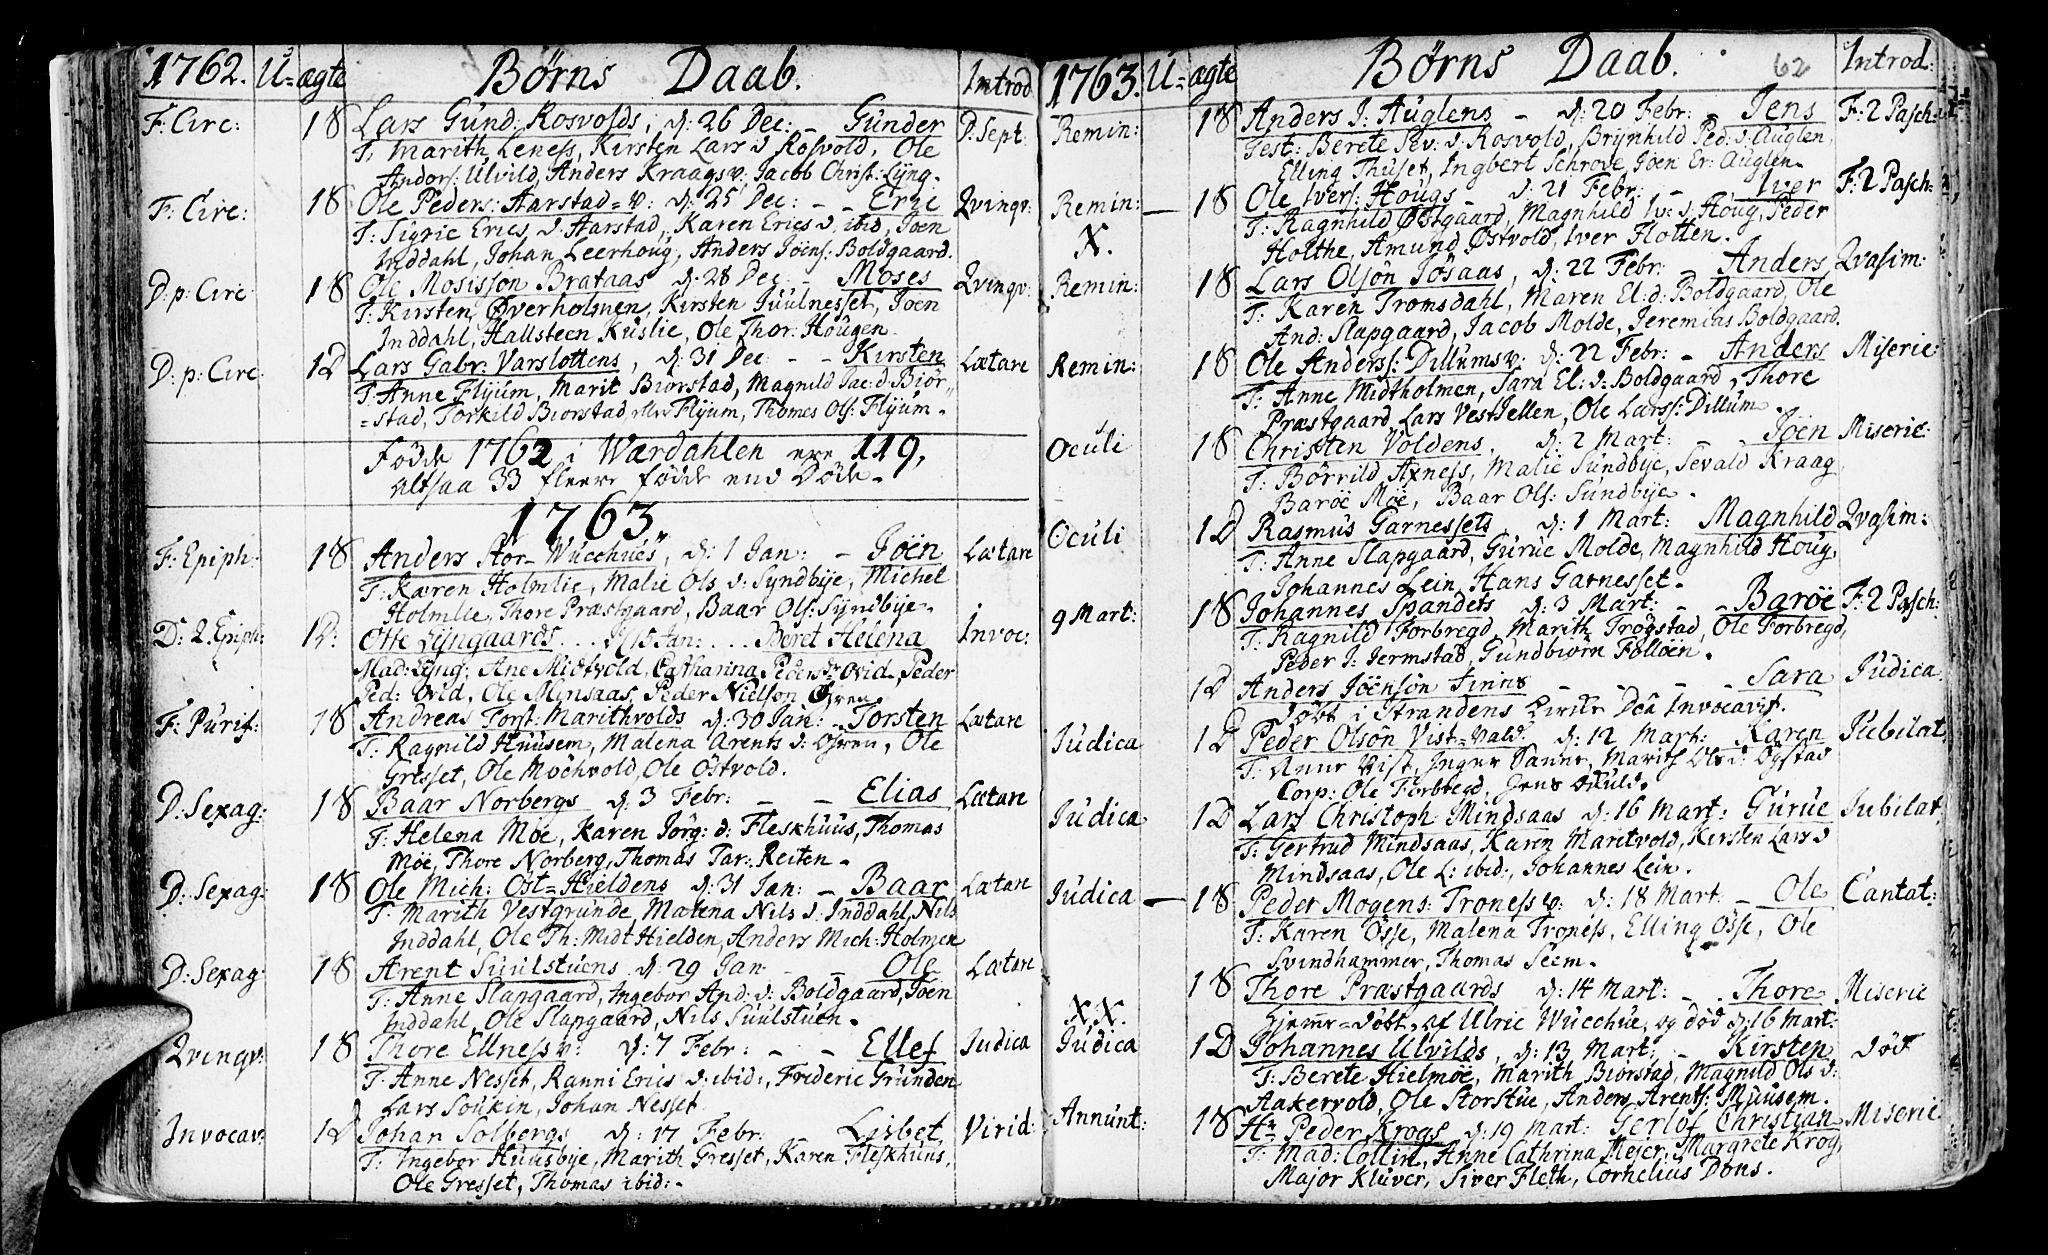 1762. U= ægte Børns Daab. Introd
F: Circ: 18 Lars Gund: Rosvolds, d: 26 Dec: – Gunder D: Sept:
T: Marith Leness, Kirsten Lars d Rosvold, Ole
Anders: Ulvild, Anders Kraagsv: Jacob Christ: Lyng.
F: Circ: 18 Ole Peders: Aarstad=v: d: 25 Dec: – – Eric Qvinqv:
T: Sigric Erics, d: Aarstad, Karen Erics d. ibid, Joen
Inddahl, Johan Leerhoug, Anders Joens: Boldgaard.
D: p: Circ 18 Ole Mosisson Brataas d: 28 Dec – Moses Qvinqv:
T: Kirsten Overholmen, Kirsten Juulnesset, Joen
Inddahl, Hallsteen Kuslie, Ole Thor: Hougen.
D: p: Circ: 1D Lars Gabr: Varslottens, d: 31 Dec: – – Kirsten Lætare
T: Anne Flyum, Marit Biorstad, Magnild Jac: d: Biör=
=stad, Torkild Biorstad, Flyum, Thomes Ols: Flyum.
Födde 1762 i Wærdahlen ere 119,
altsaa 33 fleere födde end Döde.
1763.
F: Epiph: 18 Anders Stor=Wucchues, d: 1 Jan: – Joën Lætare
T: Karen Holmlie, Malie Ols d: Syndbye, Michel
Holmlie, Thore Præstgaard, Baar Ols: Syndbye.
D: 2. Epiph: 1D: Otte Lyngaards... d: 15 Jan: ... Beret Helena Invoc:
Mad: Lyng, Ane Midtvold, Catharina Peders Dr Ovid, Peder
Ped: Ovid, Ole Minsaas, Peder Nielson
F: Purif: 18 Andreas Torst: Marithvolds d: 30 Jan: – Torsten Lætare
T: Ragnild Huusem, Malena Arents d: Ostren, Ole
Gresset, Ole Mochvold, Ole Ostvold.
D: Sexag: 18 Baar Norbergs d: 3 Febr: – – Elias Lætare
T: Helena Möe, Karen Jörg: d: Fleskhuus, Thomas
Möe, Thore Norberg, Thomas Tar: Reiten.
D: Sexag: 18 Ole Mich: Ost=Hieldens d: 31 Jan: – Baar Lætare
T: Marith Vestgrunde, Malena Nils d: Inddahl, Nils
Inddahl, Ole Th: Midt Hielden, Anders Mich: Holmen
D: Sexag: 18 Arent Suulstuens d: 29 Jan – – Ole Lætare
T: Anne Slapgaard, Ingebor And: d: Boldgaard, Joen
Inddahl, Ole Slapgaard, Nils Suulstuen.
Qvinqv: 18 Thore Ellnessv: d: 7 Febr: – – Ellef Judica
T: Anne Nesset, Ranni Erics d: ibid:, Frideric Grunden
Lars Soukin, Johan Nesset.
Invocav: 1D Johan Solbergs d: 17 Febr: Lisbet Virid:
T: Ingebor Huusbye, Marith Gresset, Karen Fleskhuus,
Ole Gresset, Thomas ibid:.
1763. U= ægte Børns Daab. 62 Introd:
Remin: 18 Anders J: Auglens – d: 20 Febr: Jens F: 2 Pasch:
Test: Berete Siv: d: Rosvold, Brynhild Ped: d: Auglen,
Elling Thuset, Ingbert Schrove, Joen Er: Auglen.
Remin: — 18 Ole Ivers: Hougs – d: 21 Febr: – Iver F: 2 Pasch:
X. T: Ragnhild Østgaard, Magnhild Iv: d: Houg, Peder
Holthe, Amund Østvold, Iver Flotten.
Remin: 18 Lars Olson Josaas, d: 22 Febr: Anders Qvasim:
T: Karen Tromsdahl, Maren El: d: Boldgaard, Ole
And: Slapgaard, Jacob Molde, Jeremias Boldgaard.
Remin: 18 Ole Anderss: Dillumsv: d: 22 Febr: – Anders Miseric:
T: Anne Midtholmen, Sara El: d: Boldgaard, Thore
Præstgaard, Lars Vestjellen, Ole Larss: Dillum.
Oculi 18 Christen Voldens, d: 2 Mart: – – Joën Miseric:
T: Börrild Axness, Malie Sundbye, Sevald Kraag
Baroe Möe, Baar Ols: Sundbye.
Oculi 1D Rasmus Garnessets, d: 1 Mart: Magnhild Qvasim:
T: Anne Slapgaard, Gurue Molde, Magnhild Houg,
Johannes Lein, Hans Garnesset.
9 Mart: 18 Johannes Spandets d: 3 Mart: – – Baroe F: 2 Pasch:
T: Ragnild Forbregd, Marith Trogstad, Ole Forbregd,
Peder J: Jermstad, Gundbiorn Folloen.
1D Anders Joënson Finns – – – – Sara Judica
döbt i Strandens Kircke D:ca Invocavit.
Judica 1D Peder Olson Vist=vald: d: 12 Mart: Karen Jubilat:
T: Anne Vist, Inger Sanne, Marith Ols d: Ogstad
Corp: Ole Forbregd, Jens
Judica 1D Lars Christoph Mindsaas d: 16 Mart: Gurue Jubilat:
T: Gertrud Mindsaas, Karen Maritvold, Kirsten Lars d
Mindsaas, Ole L: ibid:, Johannes Lein.
Judica — 18 Peder Mogens: Tronessv: d: 18 Mart – Ole Cantat:
T: Karen Össe, Malena Troness, Elling Össe, Ole
Svindhammer, Thomas Seem.
18 Thore Præstgaards d: 14 Mart: – Thore Miseric
XX. hjemme=döbt, af Ulric Wucchue, og död d: 16 Mart:
Judica 1D Johannes Ulvilds, d: 13 Mart: – Kirsten död
T: Berete Hielmöe, Marith Biorstad, Magnild Ols d:
Aakervold, Ole Storstue, Anders Arents: Muusem.
Annunt: 18 Hr Peder Krogs d: 19 Mart: Gerlof Christian Miseric
T: Mad: Collin, Anne Cathrina Mejer, Margrete Krog,
Major Kluver, Siver Fleth, Cornelius Dons.